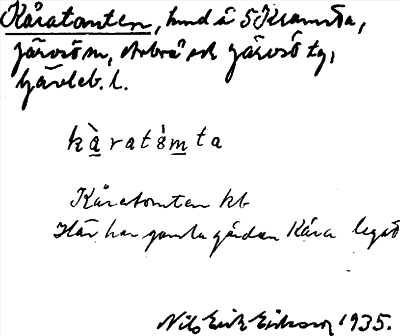 Kåratomten, hund å S Kramsta,
Järvsö sn, Arbrå och Järvsö tg,
Gävleb. l.
kàratåmta
Kåratomten kb
Här har gamla gården Kåra legat
Nils Erik Eriksson 1935.